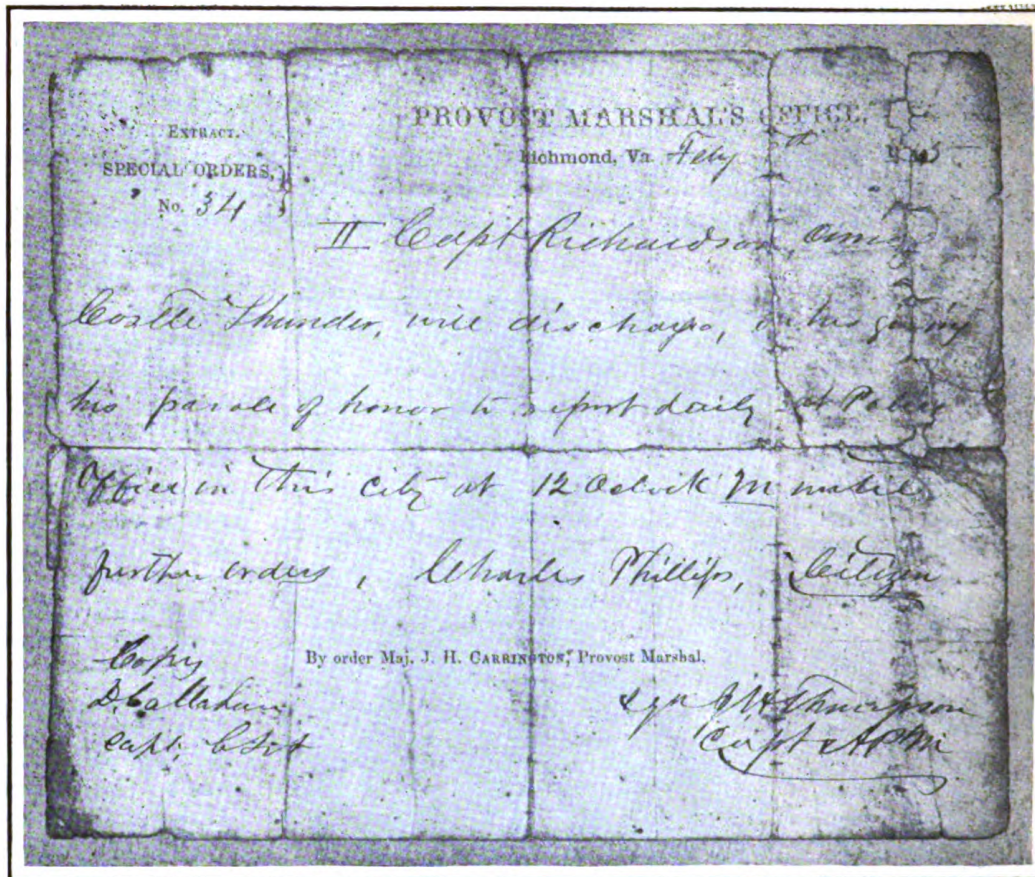 EXTRACT.
SPECIAL ORDERS,
No. 34
PROVOST MARSHAL'S OFFICE,
Richmond, Va. Feby
II Capt Richardson,
Castle Thunder, will discharge, on his giving
his parole of honor to report daily at Police
Office in this city at 12 Oclock M until
further orders, Charles Phillips, Citizen
By order Maj. J. H. CARRINGTON, Provost Marshal.
Copy
D. Callahan
Capt.
Thompson
Capt & APM